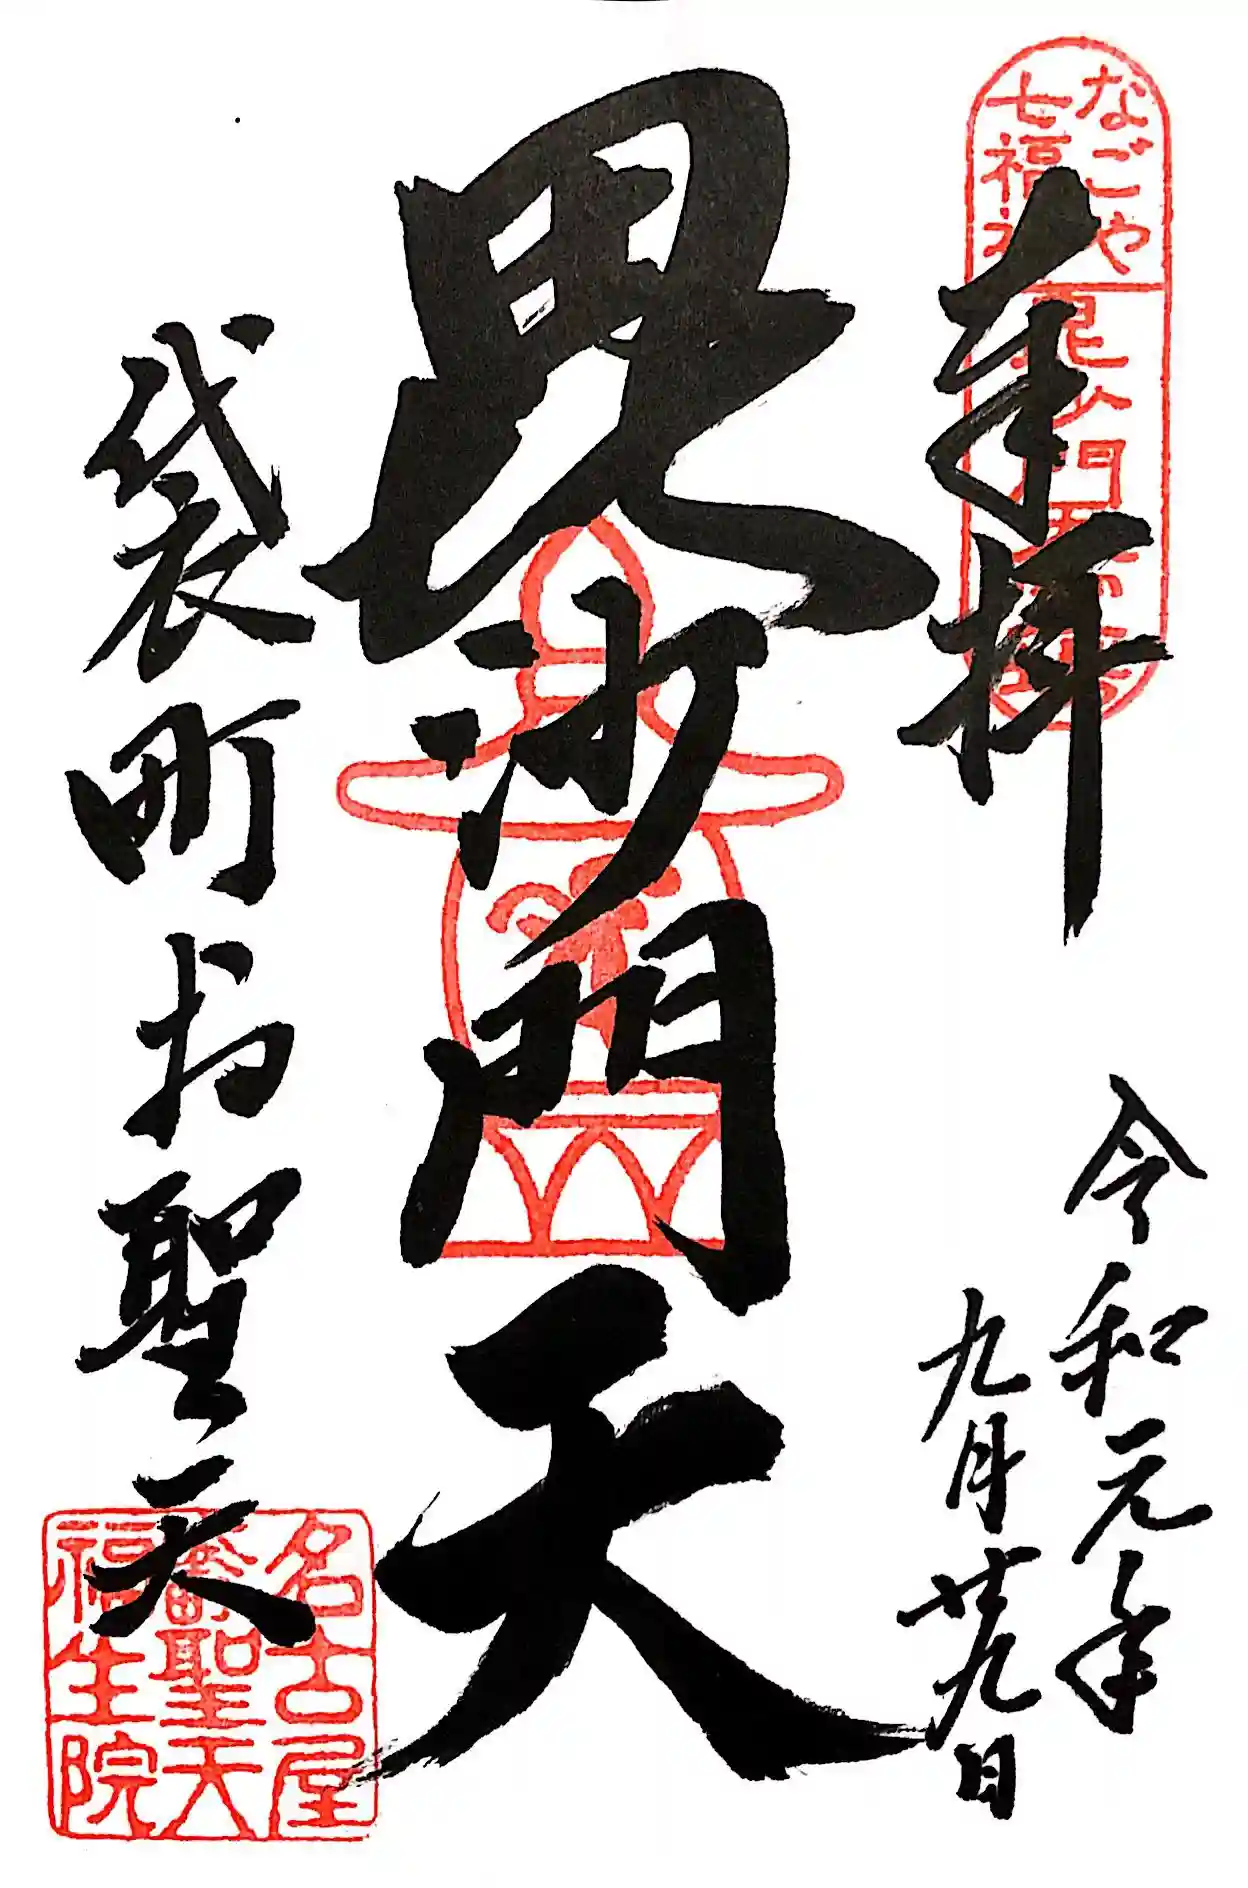 なごや
七福神
毘沙門天
奉拝
令和元年
九月廿九日
毘沙門天
袋町お聖天
名古屋
袋町聖天
福生院